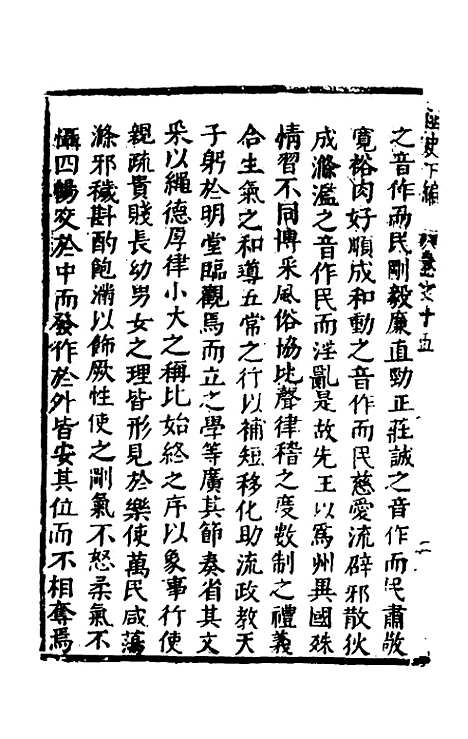 之音作而民剛毅廉直勁正莊誠之音作而民肅敬
寬裕肉好順成和動之音作而民慈愛流辟邪散狄
成滌濫之音作民而淫亂是故先王以爲州異國殊
情習不同博采風俗協比聲律稽之度數制之禮義
合生氣之和導五常之行以補短移化助流政教天
子躬於明堂臨觀焉而立之學等廣其節奏省其文
采以繩德厚律小大之稱比始終之序以象事行使
親疏貴賤長幼男女之理皆形見於樂使萬民咸蕩
滌邪穢斟酌飽滿以飾厥性使之剛氣不怒柔氣不
懾四暢交於中而發作於外皆安其位而不相奪焉
史下編 卷之十五
二